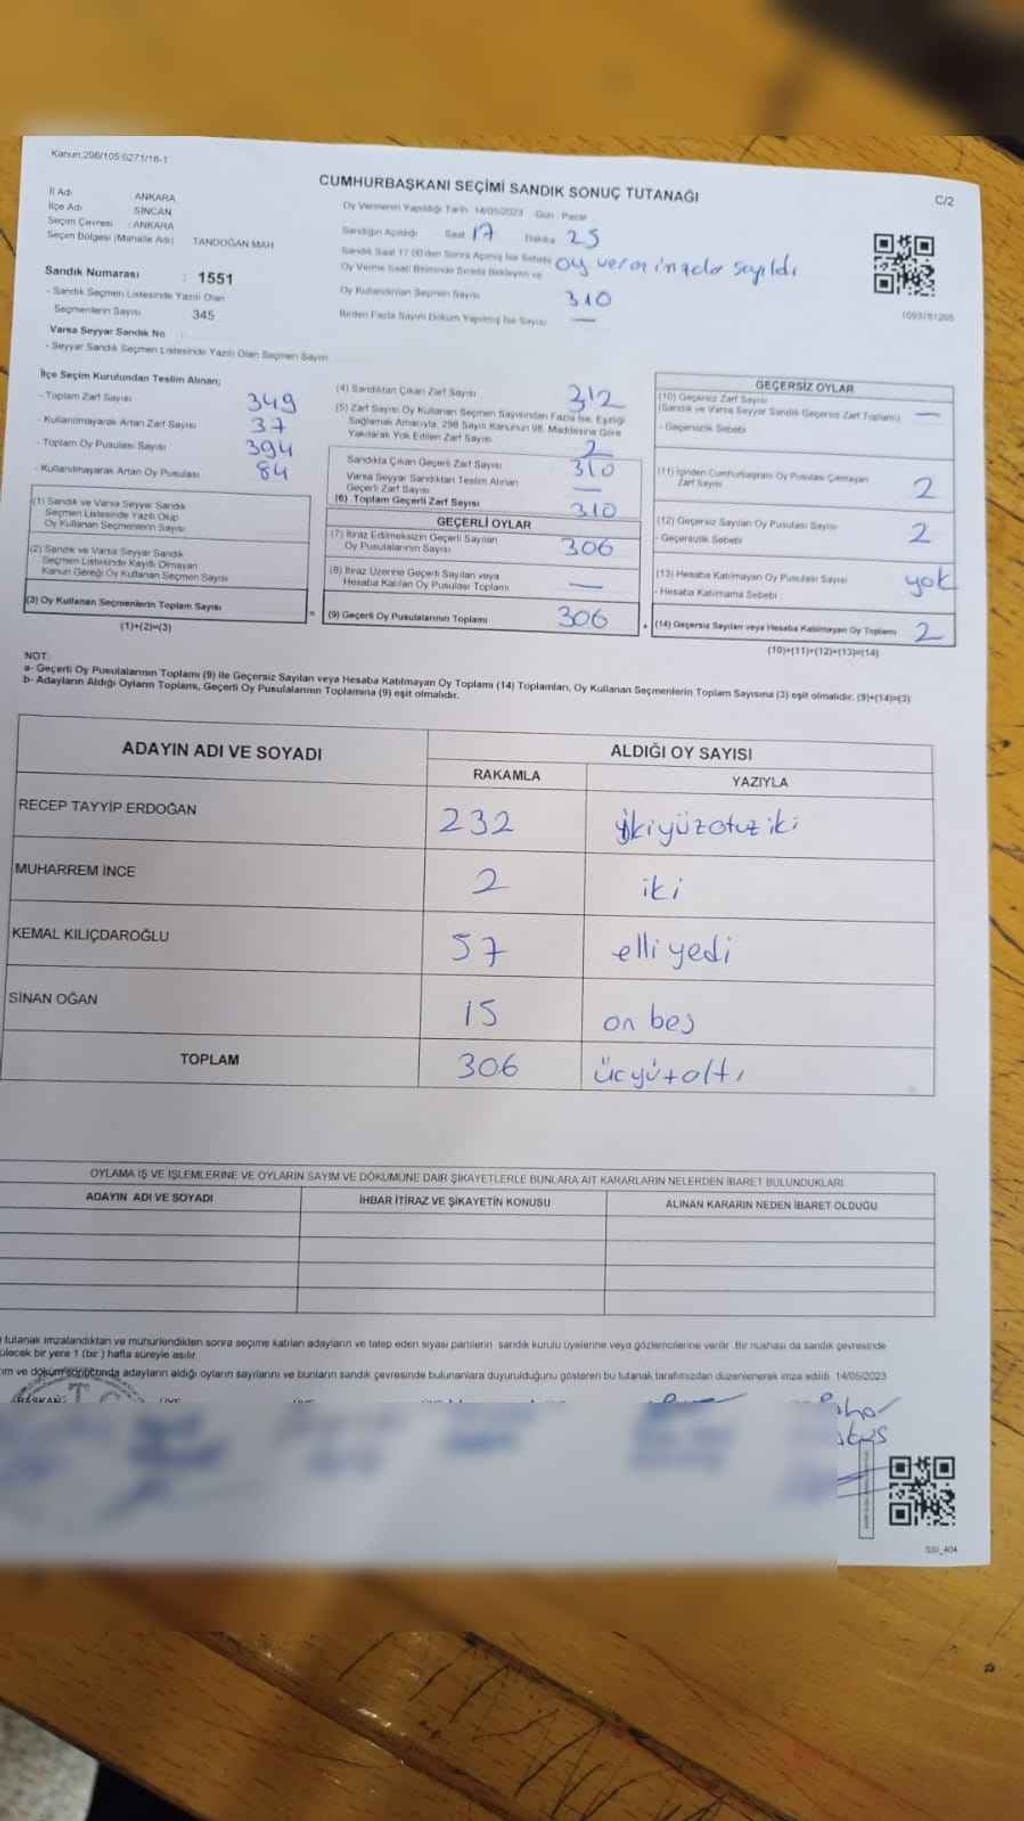 Kanun:298/105:6271/18-1
CUMHURBAŞKANI SEÇİMİ SANDIK SONUÇ TUTANAĞI
C/2
İl Adı : ANKARA
İlçe Adı : SİNCAN
Seçim Çevresi : ANKARA
Seçim Bölgesi (Mahalle Adı) : TANDOĞAN MAH
Sandık Numarası : 1551
- Sandık Seçmen Listesinde Yazılı Olan
Seçmenlerin Sayısı 345
Varsa Seyyar Sandık No :
- Seyyar Sandık Seçmen Listesinde Yazılı Olan Seçmen Sayısı
Oy Vermenin Yapıldığı Tarih: 14/05/2023 Gün: Pazar
Sandığın Açıldığı Saat 17 Dakika 25
Sandık Saat 17.00'den Sonra Açılmış İse Sebebi oy verme
Oy Verme Saati Bitiminde Sırada Bekleyen ve sayıldı
Oy Kullandırılan Seçmen Sayısı 310
Birden Fazla Sayım Döküm Yapılmış İse Sayısı —
1093781265
İlçe Seçim Kurulundan Teslim Alınan;
- Toplam Zarf Sayısı 349
- Kullanılmayarak Artan Zarf Sayısı 37
- Toplam Oy Pusulası Sayısı 394
- Kullanılmayarak Artan Oy Pusulası 84
(1) Sandık ve Varsa Seyyar Sandık
Seçmen Listesinde Yazılı Olup
Oy Kullanan Seçmenlerin Sayısı
(2) Sandık ve Varsa Seyyar Sandık
Seçmen Listesinde Kayıtlı Olmayan
Kanun Gereği Oy Kullanan Seçmen Sayısı
(3) Oy Kullanan Seçmenlerin Toplam Sayısı
(1)+(2)=(3)
(4) Sandıktan Çıkan Zarf Sayısı 312
(5) Zarf Sayısı Oy Kullanan Seçmen Sayısından Fazla İse, Eşitliği
Sağlamak Amacıyla, 298 Sayılı Kanunun 98. Maddesine Göre
Yakılarak Yok Edilen Zarf Sayısı 2
Sandıkta Çıkan Geçerli Zarf Sayısı 310
Varsa Seyyar Sandıktan Teslim Alınan
Geçerli Zarf Sayısı —
(6) Toplam Geçerli Zarf Sayısı 310
GEÇERLİ OYLAR
(7) İtiraz Edilmeksizin Geçerli Sayılan
Oy Pusulalarının Sayısı 306
(8) İtiraz Üzerine Geçerli Sayılan veya
Hesaba Katılan Oy Pusulası Toplamı —
= (9) Geçerli Oy Pusulalarının Toplamı 306
GEÇERSİZ OYLAR
(10) Geçersiz Zarf Sayısı
(Sandık ve Varsa Seyyar Sandık Geçersiz Zarf Toplamı) —
- Geçersizlik Sebebi
(11) İçinden Cumhurbaşkanı Oy Pusulası Çıkmayan
Zarf Sayısı 2
(12) Geçersiz Sayılan Oy Pusulası Sayısı 2
- Geçersizlik Sebebi
(13) Hesaba Katılmayan Oy Pusulası Sayısı yok
- Hesaba Katılmama Sebebi
+ (14) Geçersiz Sayılan veya Hesaba Katılmayan Oy Toplamı 2
(10)+(11)+(12)+(13)=(14)
NOT:
a- Geçerli Oy Pusulalarının Toplamı (9) ile Geçersiz Sayılan veya Hesaba Katılmayan Oy Toplamı (14) Toplamları, Oy Kullanan Seçmenlerin Toplam Sayısına (3) eşit olmalıdır. (9)+(14)=(3)
b- Adayların Aldığı Oyların Toplamı, Geçerli Oy Pusulalarının Toplamına (9) eşit olmalıdır.
ADAYIN ADI VE SOYADI ALDIĞI OY SAYISI
RAKAMLA YAZIYLA
RECEP TAYYİP ERDOĞAN 232 ikiyüzotuz iki
MUHARREM İNCE 2 iki
KEMAL KILIÇDAROĞLU 57 elli yedi
SİNAN OĞAN 15 on beş
TOPLAM 306 üçyüzaltı
OYLAMA İŞ VE İŞLEMLERİNE VE OYLARIN SAYIM VE DÖKÜMÜNE DAİR ŞİKAYETLERLE BUNLARA AİT KARARLARIN NELERDEN İBARET BULUNDUKLARI
ADAYIN ADI VE SOYADI İHBAR İTİRAZ VE ŞİKAYETİN KONUSU ALINAN KARARIN NEDEN İBARET OLDUĞU
tutanak imzalandıktan ve mühürlendikten sonra seçime katılan adayların ve talep eden siyasi partilerin sandık kurulu üyelerine veya gözlemcilerine verilir. Bir nüshası da sandık çevresinde
bir yere 1 (bir) hafta süreyle asılır.
ve döküm sonucunda adayların aldığı oyların sayılarını ve bunların sandık çevresinde bulunanlara duyurulduğunu gösteren bu tutanak tarafımızdan düzenlenerek imza edildi. 14/05/2023